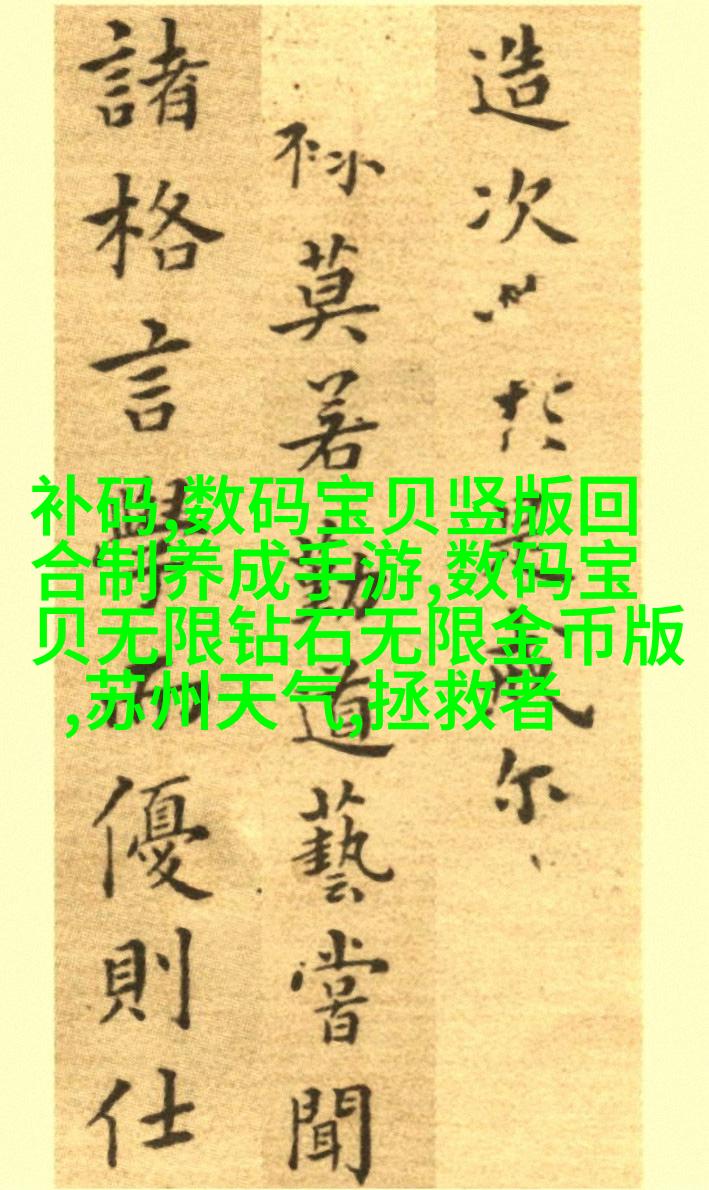 造次於是尔
莫若勤道藝嘗聞
諸格言學而優則仕
补码,数码宝贝竖版回
合制养成手游,数码宝
贝无限钻石无限金币版
,苏州天气,拯救者